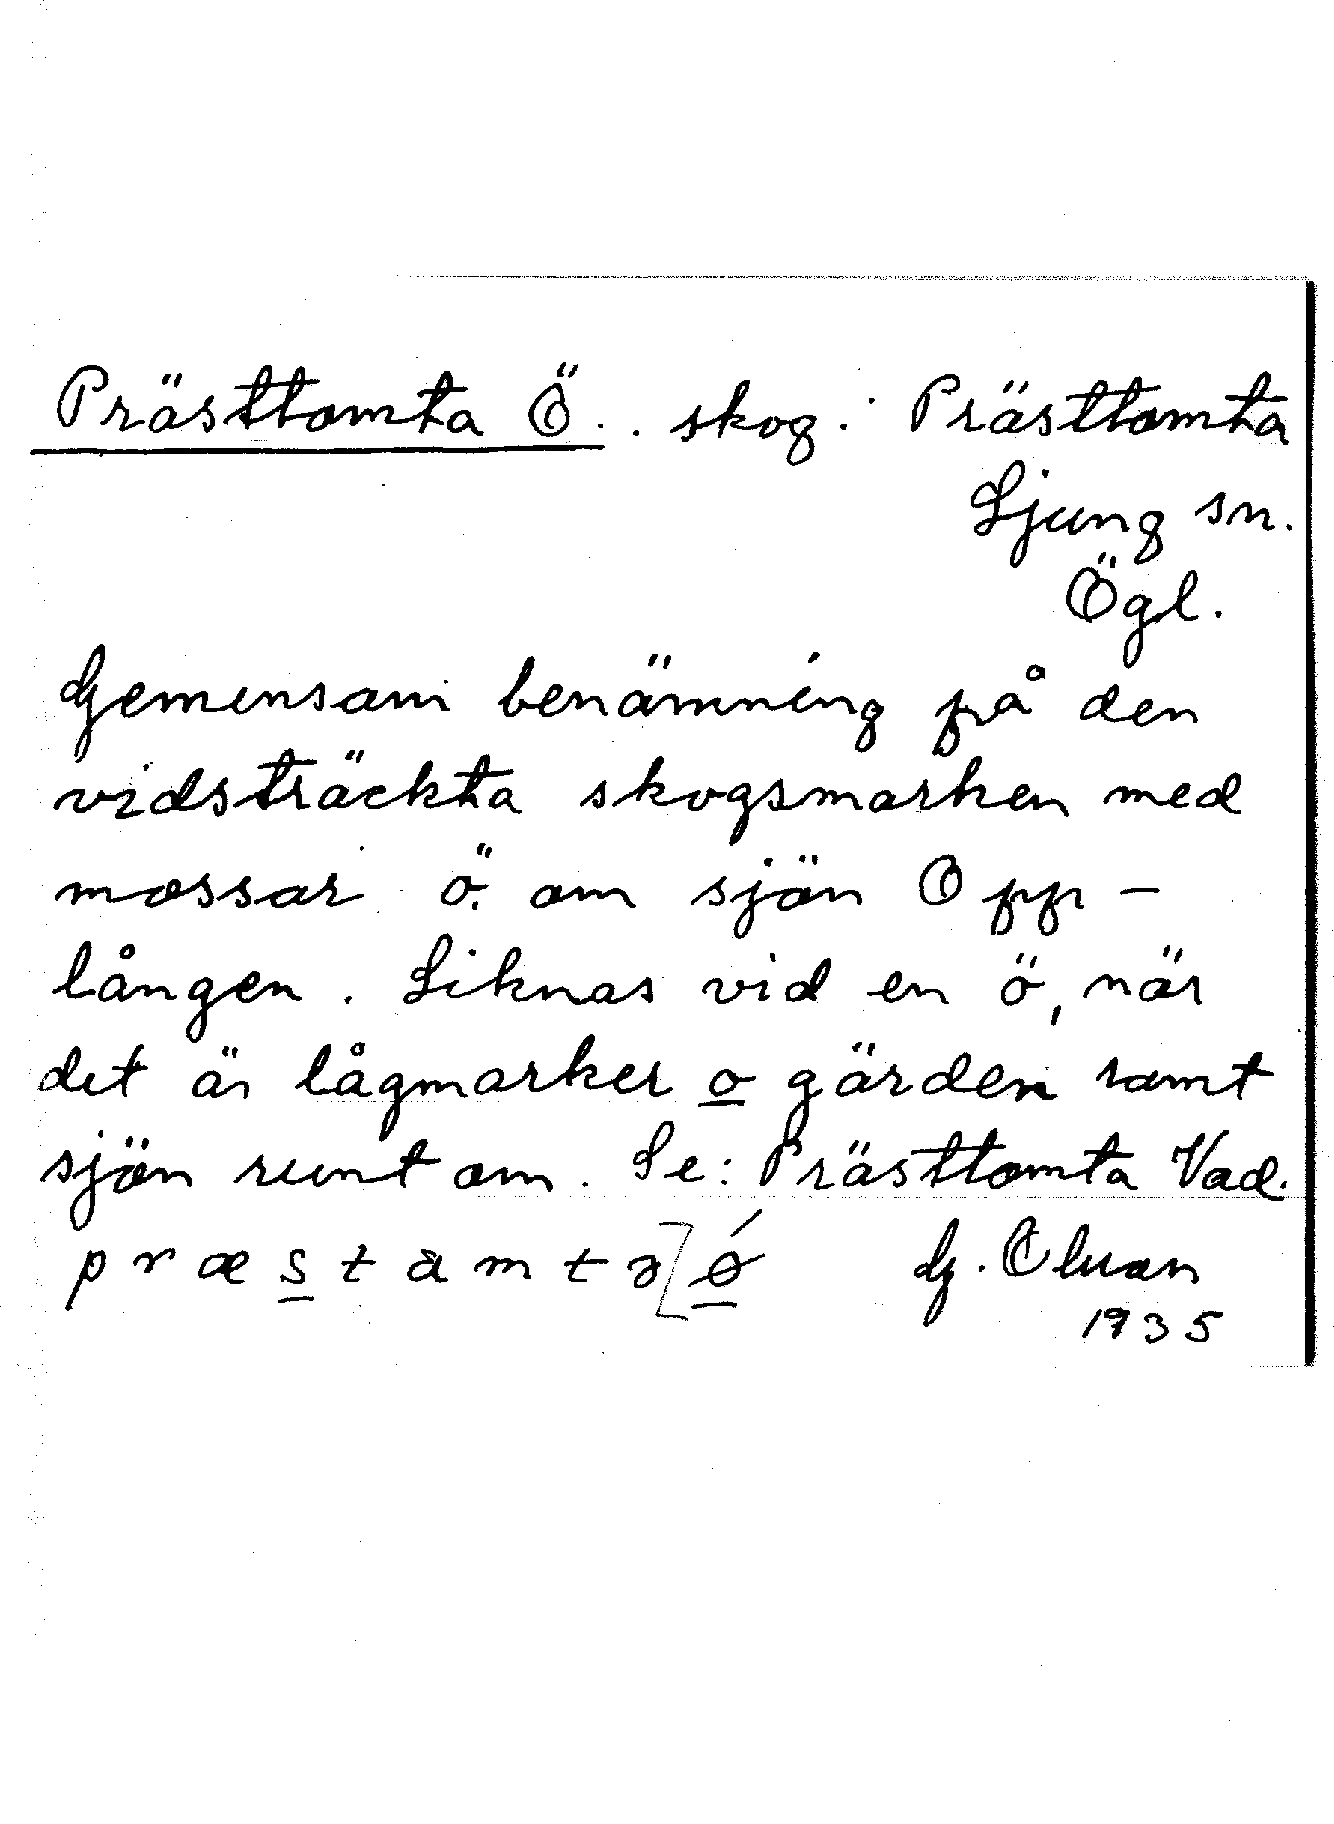 Prästtomta Ö. . skog : Prästtomta
Ljung sn.
Ögl.
Gemensam benämning på den
vidsträckta skogsmarken med
mossar ö. om sjön Opp-
lången. Liknas vid en ö, när
det är lågmarker o gärden samt
sjön runt om. Se: Prästtomta Vad.
præstamtə[ǿ G. Olsson
1935